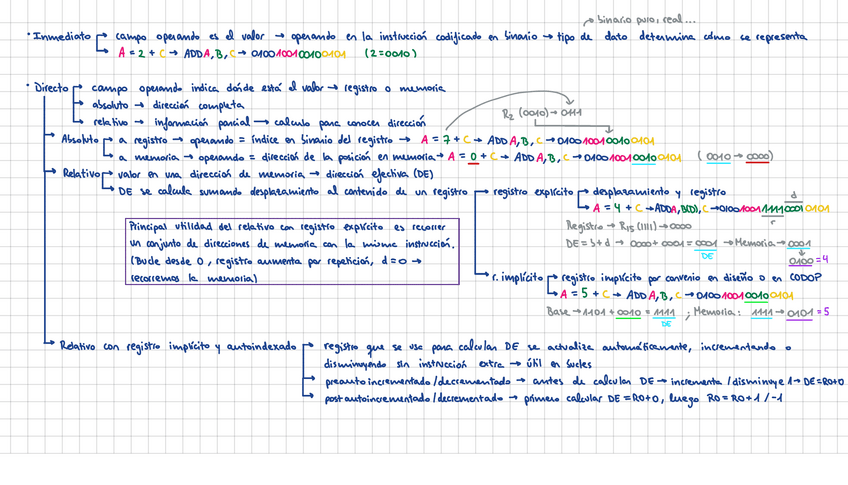 binario puro, real...
• Inmediato → campo operando es el valor → operando en la instrucción codificado en binario → tipo de dato determina cómo se representa
→ A = 2 + C → ADD A, B, C → 0100100100100101 (2=0010)
• Directo → campo operando indica dónde está el valor → registro o memoria
→ absoluto → dirección completa
→ relativo → información parcial → calculo para conocer dirección
R2 (0010) → 0111
→ Absoluto → a registro → operando = índice en binario del registro → A = 7 + C → ADD A, B, C → 0100100100100101
→ a memoria → operando = dirección de la posición en memoria → A = 0 + C → ADD A, B, C → 0100100100100101 (0010 → 0000)
→ Relativo → valor en una dirección de memoria → dirección efectiva (DE)
→ DE se calcula sumando desplazamiento al contenido de un registro → registro explícito → desplazamiento y registro
d
→ A = 4 + C → ADD A, B(D), C → 01001001111100010101
r
Registro → R15 (1111) → 0000
DE = b + d → 0000 + 0001 = 0001 → Memoria → 0001
DE
0100 = 4
Principal utilidad del relativo con registro explícito es recorrer
un conjunto de direcciones de memoria con la misma instrucción.
(Bucle desde 0, registro aumenta por repetición, d = 0 →
recorremos la memoria)
→ r. implícito → registro implícito por convenio en diseño o en CODOP
→ A = 5 + C → ADD A, B, C → 0100100100100101
Base → 1101 + 0010 = 1111 ; Memoria: 1111 → 0101 = 5
DE
→ Relativo con registro implícito y autoindexado → registro que se usa para calcular DE se actualiza automáticamente, incrementando o
disminuyendo sin instrucción extra → útil en bucles
→ preautoincrementado/decrementado → antes de calcular DE → incrementa / disminuye 1 → DE = R0+0
→ postautoincrementado/decrementado → primero calcular DE = R0+0, luego R0 = R0+1 / -1